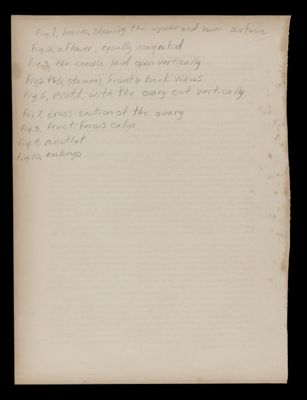 Fig. 1, leaves, showing the upper and lower surface
Fig. 2, a flower, equally magnified
Fig. 3, the corolla laid open vertically
Figs 4&5, stamens, front & back views
Fig 6, Pistil, with the ovary cut vertically
Fig. 7, cross-section of the ovary
Fig. 8, fructiferous calyx
Fig. 9, a nutlet
Fig 10, embryo